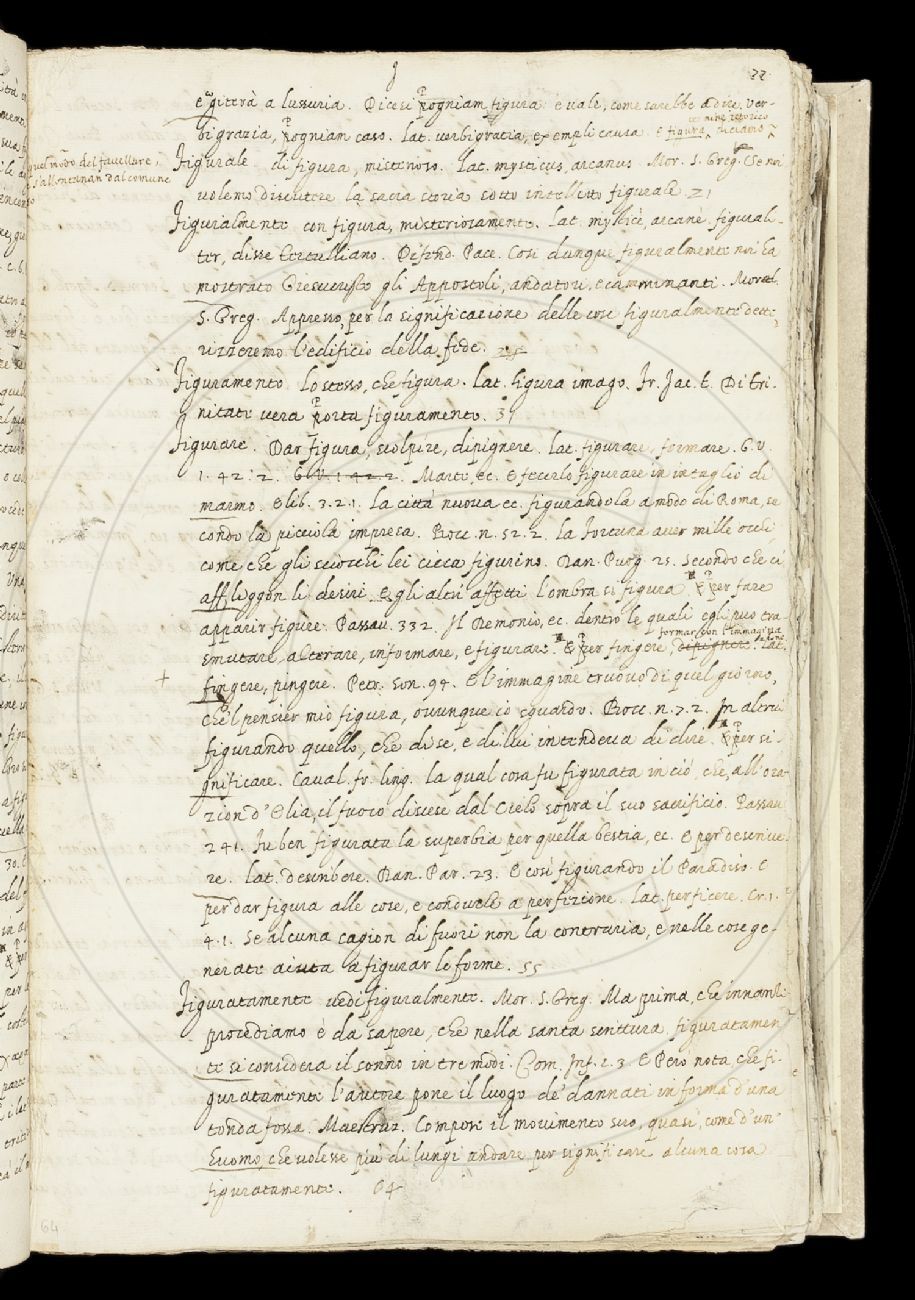 22
e gitterà a lussuria. Dicesi pogniam figura e vale, come sarebbe a dire, ver-
bigrazia, pogniam caso. lat. verbigratia, exempli causa. e figura diciamo
quel modo del favellare,
s'allontanan dal comune
Figurale di figura, misterioso. lat. mysticus, arcanus. Mor. S. Greg. Se noi
volemo discutere la sacra storia sotto intelletto figurale. 21
Figuralmente con figura, misteriosamente. lat. mysticè, arcane, figurali-
ter, disse Tertulliano. Difend. Pace. Così dungue figuralmente noi ha
mostrato Giesucristo gli Appostoli, andatori, e camminanti. Moral.
S. Greg. Appresso, per la significazione delle cose figuralmente
rizzeremo l'edificio della fede.
Figuramento. Lo stesso, che figura. lat. figura imago. Fr. Jac. t. Di Tri-
nitate vera porta figuramento. 31
Figurare. Dar figura, scolpire, dipignere. lat. figurare, formare. G. V.
1. 42. 2. G. V. 1. 42. 2. Marte, ec. e fecerlo figurare in intaglio di
marmo. E lib. 3. 2. 1. La città nuova ec. figurandola a modo di Roma, se
condo la picciola impresa. Bocc. n. 52. 2. La Fortuna aver mille occhi
come che gli sciocchi lei cieca figurino. Dan. Purg. 25. Secondo che ci
affliggon li desiri, e gli altri affetti l'ombra si figura. E per fare
apparir figure. Passav. 332. Il Demonio, ec. dentro le quali egli può tra-
smutare, alterare, informare, e figurare. E per fingere, dipignere. lat.
formar con l'immagina
zione
+
fingere, pingere. Petr. son. 94. E l'immagine truovo di quel giorno,
che'l pensier mio figura, ovunque io sguardo. Bocc. n. 7. 2. In altrui
figurando quello, che di se, e di lui intendeva di dire. E per si-
gnificare. Caval. fr. ling. la qual cosa fu figurata in ciò, che, all'ora-
zion d'Elia, il fuoco discese dal Cielo sopra il suo sacrificio. Passav.
241. Fu ben figurata la superbia per quella bestia, ec. E per descrive-
re. lat. describere. Dan. Par. 23. E così figurando il Paradiso. E
per dar figura alle cose, e conducele a perfezione. lat. perficere. Cr. 1.
4. 1. Se alcuna cagion di fuori non la contraria, e nelle cose ge-
nerate aiuta a figurar le forme. 55
Figuratamente vedi figuralmente. Mor. S. Greg. Ma prima, che innanzi
procediamo è da sapere, che nella santa scrittura figuratamen
te si considera il sonno in tre modi. Com. Inf. 2. 3. E Però nota, che fi-
guratamente l'autore pone il luogo de' dannati in forma d'una
tonda fossa. Maestruz. Compose il movimento suo, quasi, come d'un
huomo, che volesse più di lungi andare per significare alcuna cosa
figuratamente. 64
64